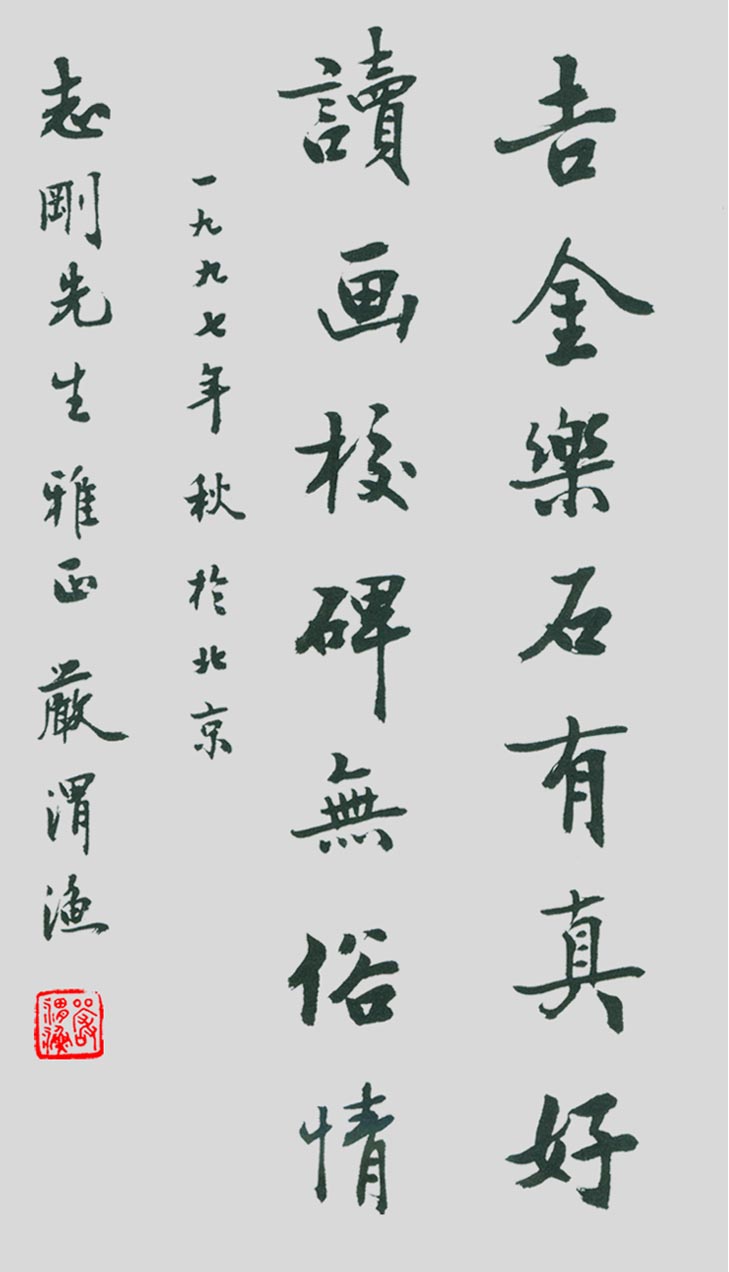 吉金樂石有真好
讀画校碑無俗情
一九九七年秋於北京
志剛先生雅正 嚴渭漁